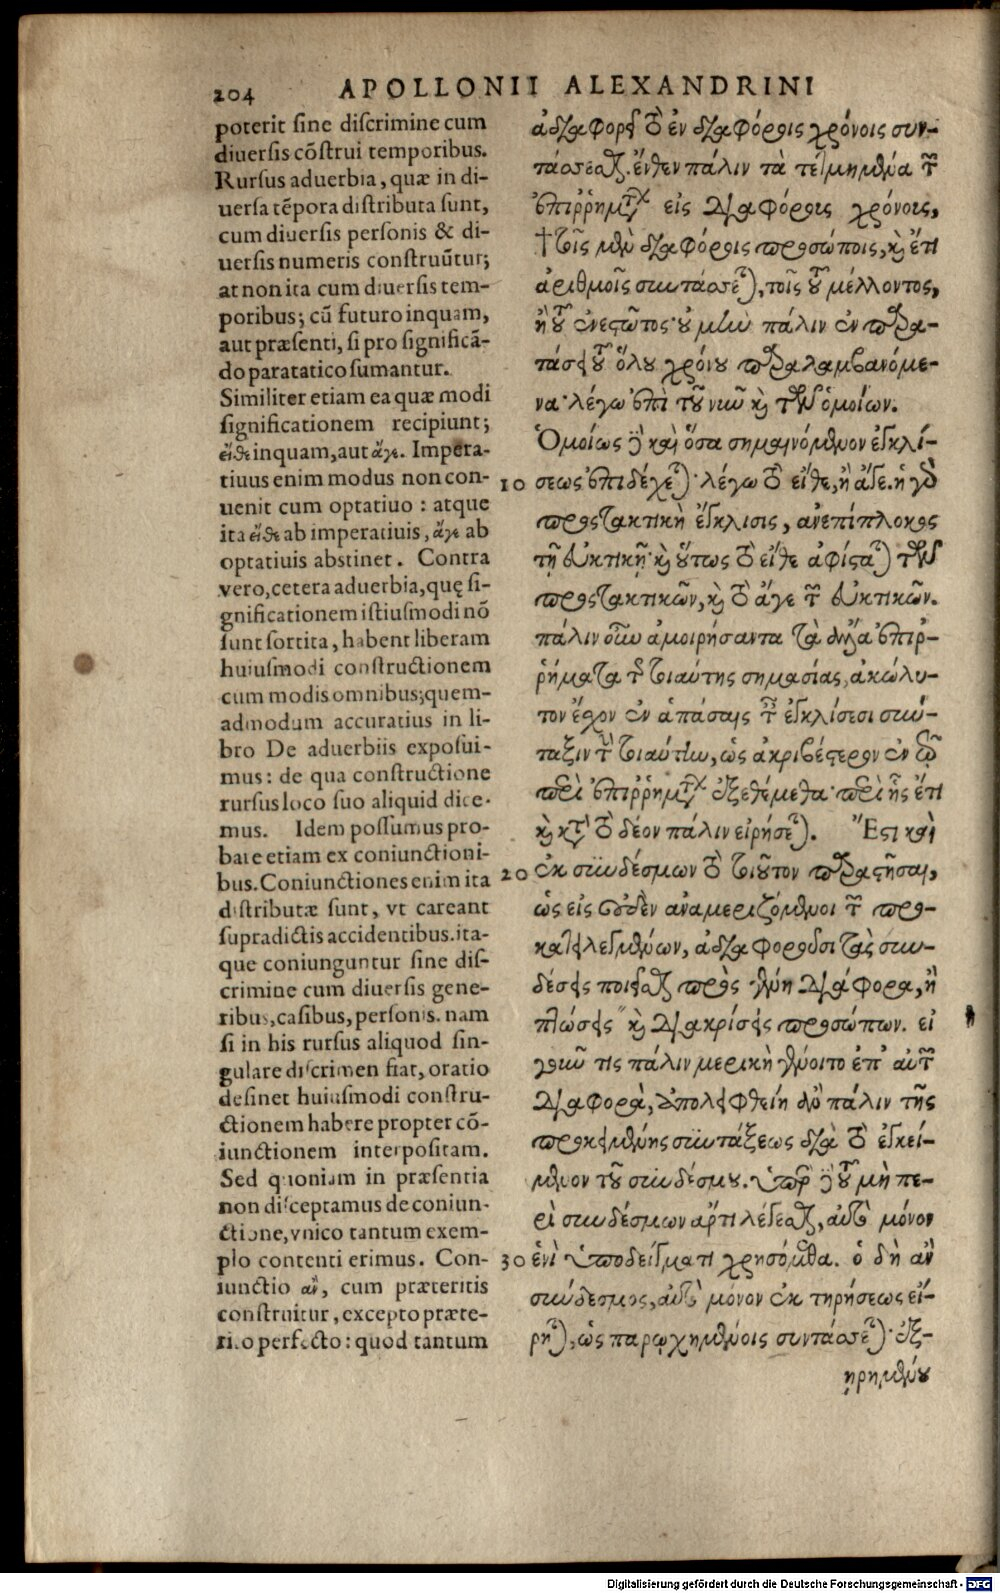 204 APOLLONII ALEXANDRINI
poterit sine discrimine cum
diuersis cõstrui temporibus.
Rursus aduerbia, quæ in di-
uersa tẽpora distributa sunt,
cum diuersis personis & di-
uersis numeris construũtur;
at non ita cum diuersis tem-
poribus; cũ futuro inquam,
aut præsenti, si pro significã-
do paratatico sumantur.
Similiter etiam ea quæ modi
significationem recipiunt;
εἴθε inquam, aut ἄγε. Impera-
tiuus enim modus non con-
uenit cum optatiuo : atque
ita εἴθε ab imperatiuis, ἄγε ab
optatiuis abstinet. Contra
vero, cetera aduerbia, quę si-
gnificationem istiusmodi nõ
sunt sortita, habent liberam
huiusmodi constructionem
cum modis omnibus; quem-
admodum accuratius in li-
bro De aduerbiis exposui-
mus: de qua constructione
rursus loco suo aliquid dice-
mus. Idem possumus pro-
bare etiam ex coniunctioni-
bus. Coniunctiones enim ita
distributæ sunt, vt careant
supradictis accidentibus. ita-
que coniunguntur sine dis-
crimine cum diuersis gene-
ribus, casibus, personis. nam
si in his rursus aliquod sin-
gulare discrimen fiat, oratio
desinet huiusmodi constru-
ctionem habere propter cõ-
iunctionem interpositam.
Sed quoniam in præsentia
non disceptamus de coniun-
ctione, vnico tantum exem-
plo contenti erimus. Con-
iunctio ἂν, cum præteritis
construitur, excepto præte-
rito perfecto: quod tantum
ἀδιαφορεῖ τὸ ἐν διαφόροις χρόνοις συν-
τάσσεσθαι. ἔνθεν πάλιν τὰ τετμημένα τῶν
ἐπιρρημάτων εἰς διαφόροις χρόνοις,
†τοῖς μὲν διαφόροις προσώποις, καὶ ἔτι
ἀριθμοῖς συντάσσεται, τοῖς τοῦ μέλλοντος,
ἢ τοῦ ἐνεστῶτος· οὐ μὴν πάλιν ἐν παρα-
τάσει τοῦ ὅλου χρόνου παραλαμβανόμε-
να· λέγω ἐπὶ τοῦ νῦν καὶ τῶν ὁμοίων.
Ὁμοίως δὲ καὶ ὅσα σημαινόμενον ἐγκλί-
10 σεως ἐπιδέχεται· λέγω τὸ εἴθε, ἢ ἄγε. ἡ γὰρ
προστακτικὴ ἔγκλισις, ἀνεπίπλοκος
τῇ εὐκτικῇ· καὶ οὕτως τὸ εἴθε ἀφίσταται τῶν
προστακτικῶν, καὶ τὸ ἄγε τῶν εὐκτικῶν.
πάλιν οὖν ἀμοιρήσαντα τὰ ἄλλα ἐπιρ-
ρήματα τῆς τοιαύτης σημασίας, ἀκώλυ-
τον ἔχον ἐν ἁπάσαις ταῖς ἐγκλίσεσι σύν-
ταξιν τὴν τοιαύτην, ὡς ἀκριβέστερον ἐν τῷ
περὶ ἐπιρρημάτων ἐξεθέμεθα· περὶ ἧς ἔτι
καὶ κατὰ τὸ δέον πάλιν εἰρήσεται. Ἔστι καὶ
20 ἐκ συνδέσμων τὸ τοιοῦτον παραστῆσαι,
ὡς εἰς οὐδὲν ἀναμεριζόμενοι τῶν προ-
κατειλεγμένων, ἀδιαφοροῦσι τὰς συν-
δέσεις ποιεῖσθαι πρὸς γένη διάφορα, ἢ
πτώσεις ἢ καὶ διακρίσεις προσώπων. εἰ
γοῦν τις πάλιν μερικὴ γένοιτο ἐπ' αὐτῶν
διαφορὰ, ἀπολειφθείη ἂν ὁ πάλιν τῆς
προκειμένης συντάξεως διὰ τὸ ἐγκεί-
μενον τοῦ συνδέσμου. ὑπὲρ δὲ τοῦ μὴ πε-
ρὶ συνδέσμων ἄρτι λέγεσθαι, αὐτὸ μόνον
30 ἑνὶ ὑποδείγματι χρησόμεθα. ὁ δὴ ἂν
σύνδεσμος, αὐτὸ μόνον ἐκ τηρήσεως εἴ-
ρηται, ὡς παρῳχημένοις συντάσσεται· ἐξ-
ῃρημένου
Digitalisierung gefördert durch die Deutsche Forschungsgemeinschaft - DFG